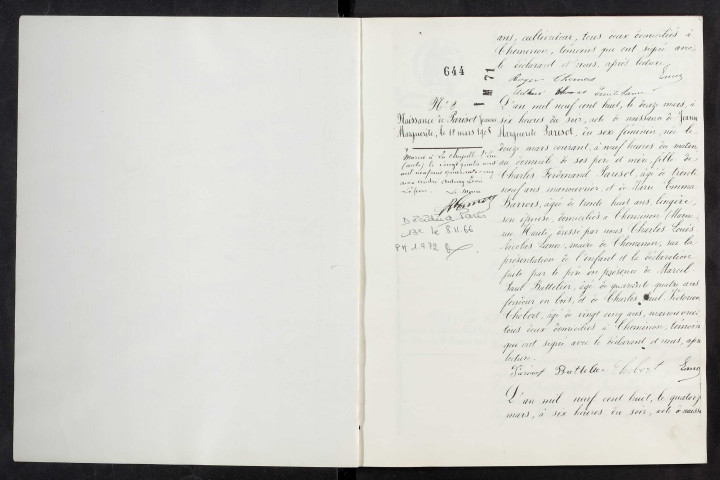 644
1 M 71
N° 8
Naissance de Parisot Jeanne
Marguerite, le 12 mars 1908
Mariée à La Chapelle
le vingt quatre
mil neuf cent quarante cinq
avec
Le Maire
Décédée à Paris
12e le 8.11.66
PM 1972
ans, cultivateur, tous deux domiciliés à
Cheminon, témoins qui ont signé avec
le déclarant et nous, après lecture.
L'an mil neuf cent huit, le douze mars, à
six heures du soir, acte de naissance de Jeanne
Marguerite Parisot, du sexe féminin, née le
douze mars courant, à neuf heures du matin
au domicile de ses père et mère, fille de
Charles Ferdinand Parisot, âgé de trente
neuf ans, manouvrier, et de Marie Emma
âgée de trente huit ans, lingère,
son épouse, domiciliés à Cheminon (Marne)
rue Haute; dressé par nous Charles Louis
Nicolas maire de Cheminon, sur la
présentation de l'enfant et la déclaration
faite par le père en présence de Marcel
Paul Battelier, âgé de quarante quatre ans
en bois, et de Charles Paul Victorien
Chobert, âgé de vingt cinq ans, manouvrier
tous deux domiciliés à Cheminon, témoins
qui ont signé avec le déclarant et nous, après
lecture.
Parisot Battelier Chobert
L'an mil neuf cent huit, le quatorze
mars, à six heures du soir, acte de naissa